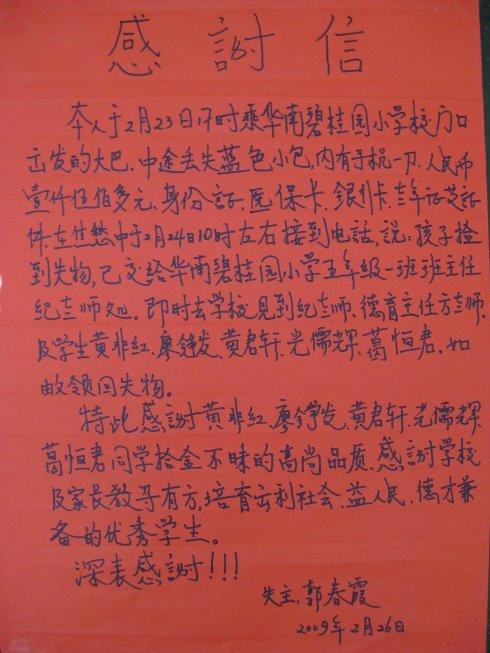 感謝信
本人于2月23日17时乘华南碧桂园小学校门口
出发的大巴.中途丢失蓝色小包,内有手机一部.人民币
壹仟伍佰多元.身份証.医保卡.銀行卡.老年证等証
件.在忧愁中于2月24日10时左右接到电话,说:孩子捡
到失物,已交给华南碧桂园小学五年级一班班主任
纪老师处.即时去学校见到纪老师.德育主任方老师.
及学生黄非红.廖錚发.黄君轩.光儒輝.葛恒君.如
故领回失物。
特此感謝黄非红.廖錚发.黄君轩.光儒輝
葛恒君同学拾金不昧的高尚品质.感謝学校
及家长教导有方,培育出利社会.益人民.德才兼
备的优秀学生。
深表感謝!!!
失主:郭春霞
2009年2月26日